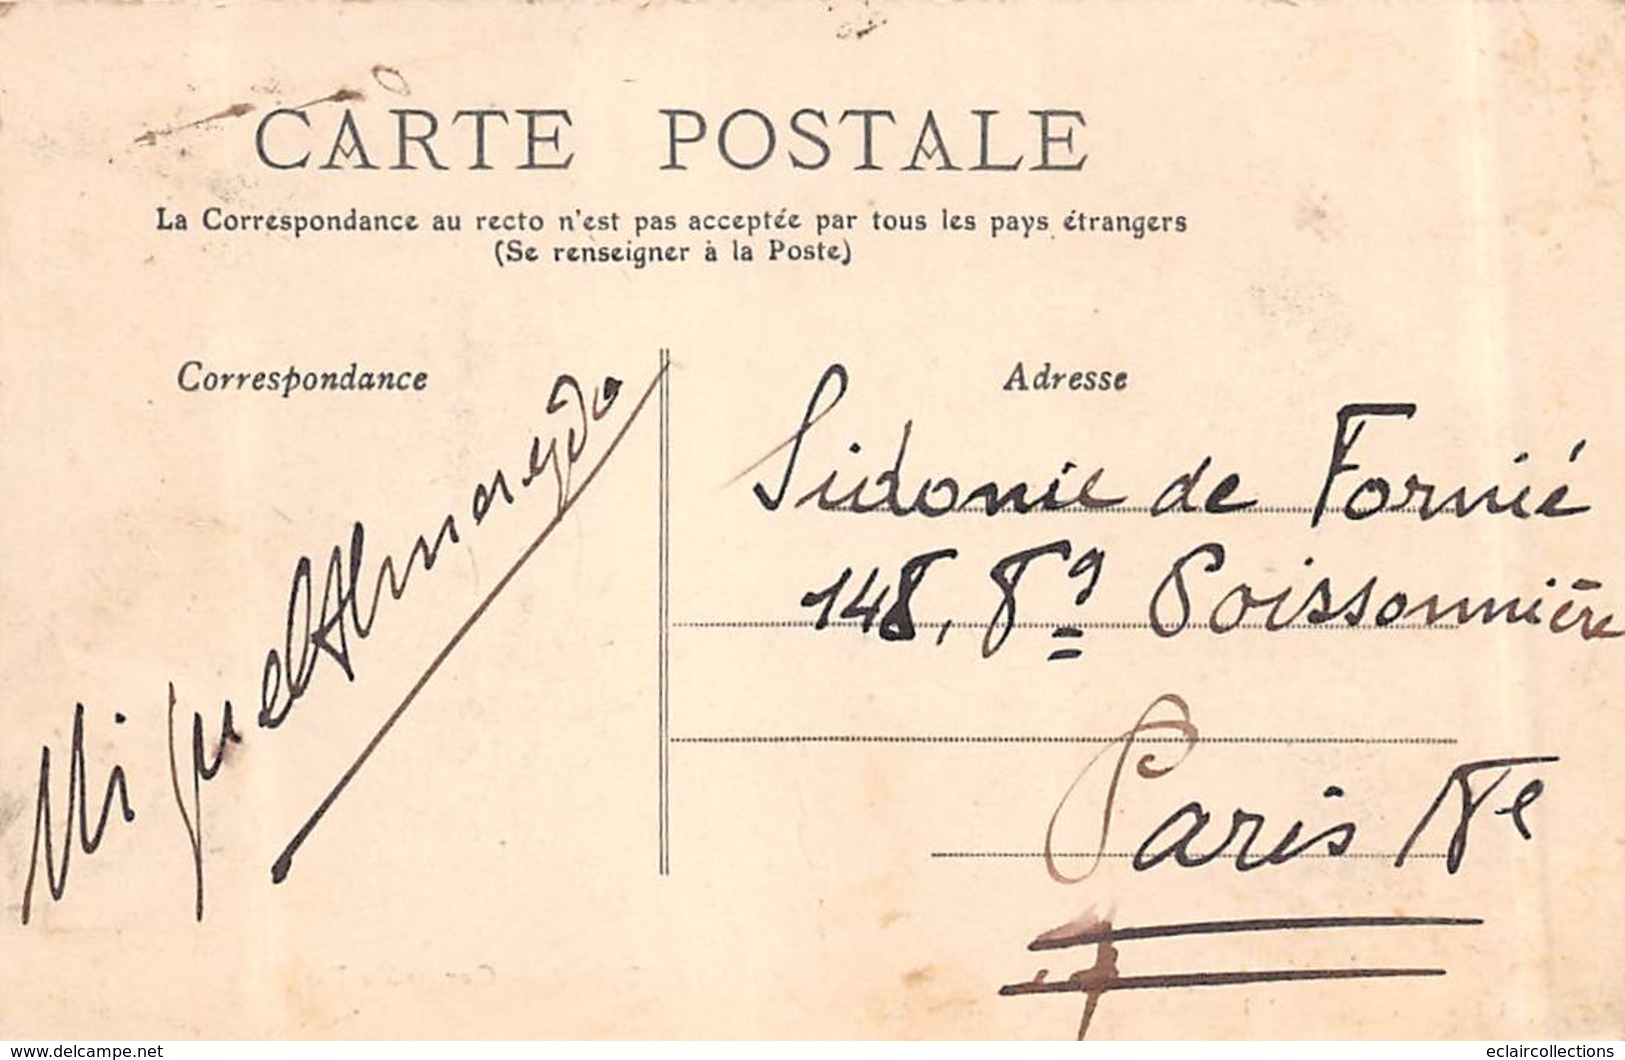 CARTE POSTALE
La Correspondance au recto n'est pas acceptée par tous les pays étrangers
(Se renseigner à la Poste)
Correspondance
Adresse
Miguel Almereyda
Sidonie de Fornié
148, Fg Poissonnière
Paris
www.delcampe.net
eclaircollections